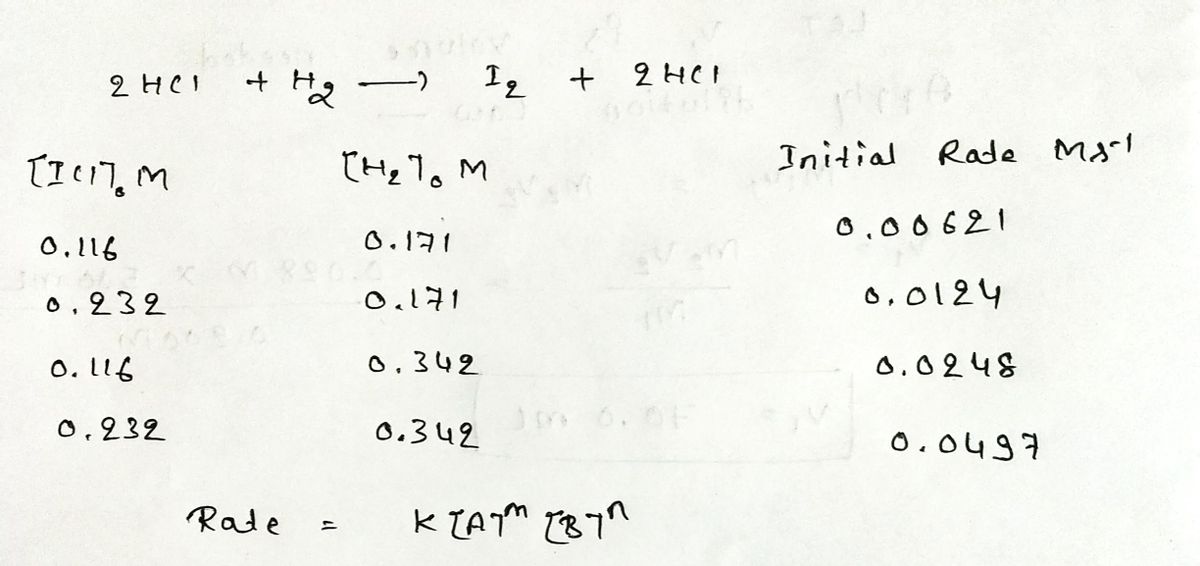 2 HCl + H2 ⟶ I2 + 2 HCl
[ICl]₀ M [H2]₀ M Initial Rate Ms-1
0.116 0.171 0.00621
0.232 0.171 0.0124
0.116 0.342 0.0248
0.232 0.342 0.0497
Rate = K [A]^m [B]^n